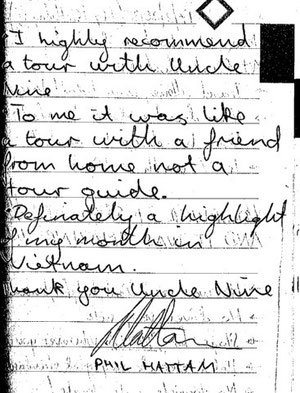 I highly recommend
a tour with Uncle
Nine
To me it was like
a tour with a friend
from home not a
tour guide.
Definately a highlight
of my month in
Vietnam.
Thank you Uncle Nine
PHIL HATTAM